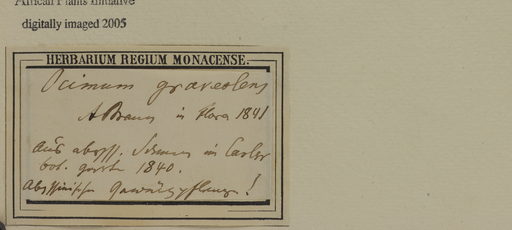 African Plants Initiative
digitally imaged 2005
HERBARIUM REGIUM MONACENSE.
Ocimum graveolens
A Braun in Flora 1841
aus abyss. Samen im Carlsr
bot. garten 1840.
Abyssinische Gewürzpflanze!